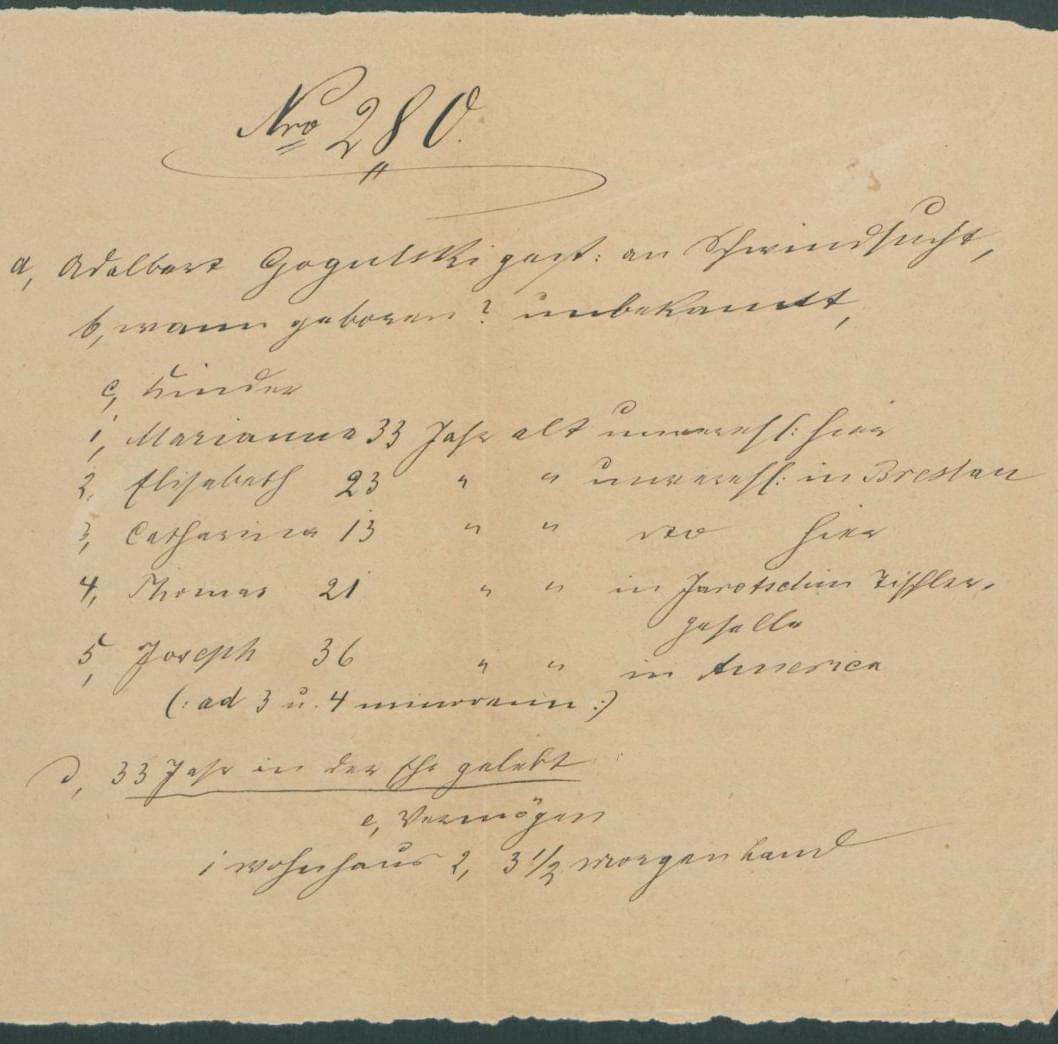 Nro 280.
a, Adalbert Gogulski gest: an Schwindsucht,
b, wann geboren? unbekannt,
c, Kinder
1, Marianna 33 Jahr alt unvereh l: hier
2, Elisabeth 23 " " unvereh l: in Breslau
3, Catharina 13 " " dto hier
4, Thomas 21 " " in Jarotschin Tischler-
geselle
5, Joseph 36 " " in America
(: ad 3 u. 4 minorenn :)
d, 33 Jahr in der Ehe gelebt
e, Vermögen
1 Wohnhaus 2, 3 1/2 Morgen Land